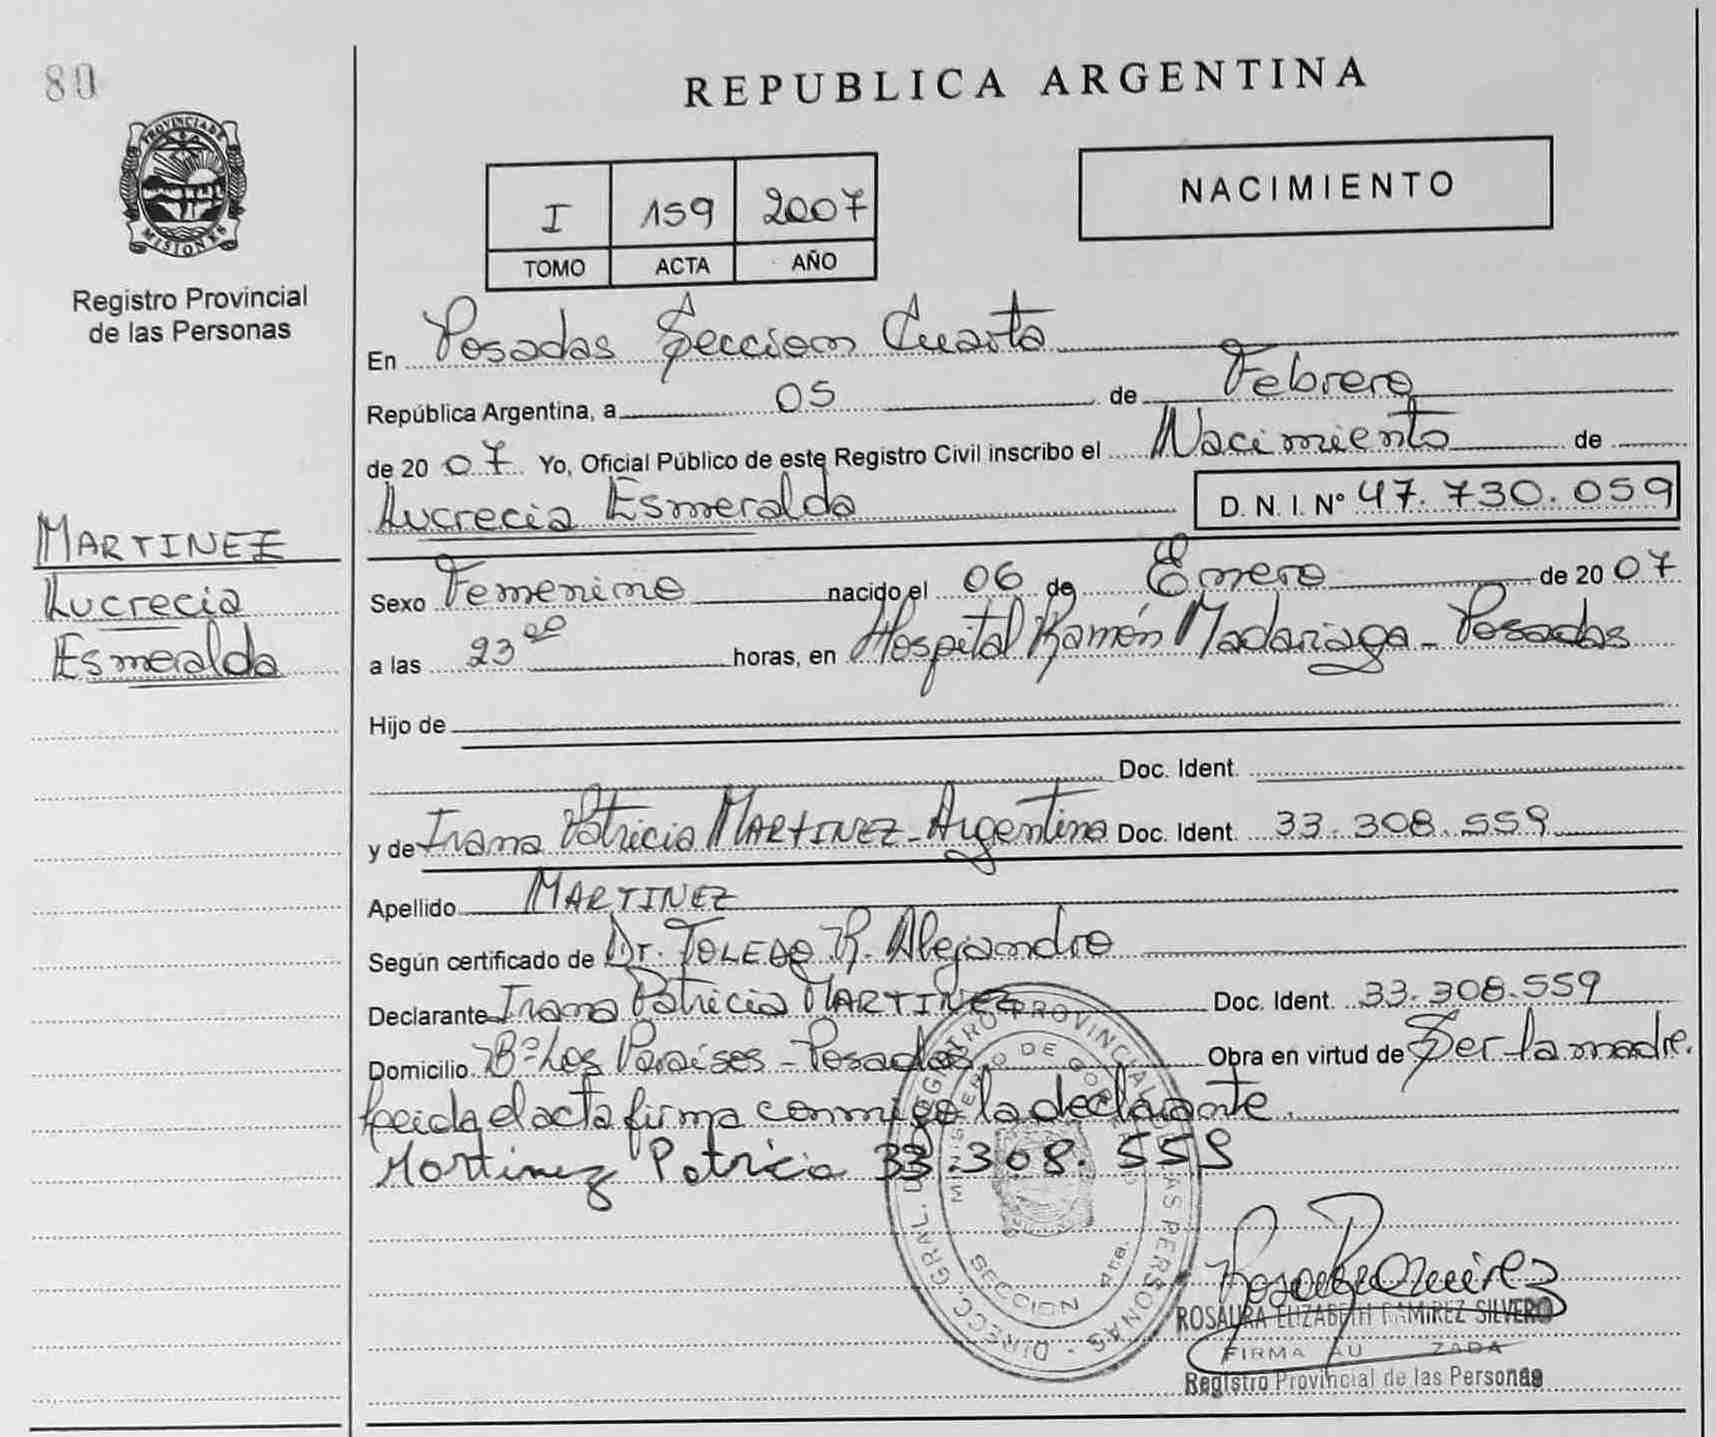 80
REPUBLICA ARGENTINA
PROVINCIA DE
MISIONES
Registro Provincial
de las Personas
I 159 2007
TOMO ACTA AÑO
NACIMIENTO
En Posadas Seccion Cuarta
República Argentina, a 05 de Febrero
de 2007 Yo, Oficial Público de este Registro Civil inscribo el Nacimiento de
Lucrecia Esmeralda D. N. I. Nº 47.730.059
MARTINEZ
Lucrecia
Esmeralda
Sexo Femenino nacido el 06 de Enero de 2007
a las 23 horas, en Hospital Ramón Madariaga - Posadas
Hijo de
Doc. Ident.
y de Ivana Patricia MARTINEZ - Argentina Doc. Ident. 33.308.559
Apellido MARTINEZ
Según certificado de Dr. TOLEDO R. Alejandro
Declarante Ivana Patricia MARTINEZ Doc. Ident. 33.308.559
Domicilio Bº Los Paraíses - Posadas Obra en virtud de Ser la madre.
Leida el acta firma conmigo la declarante.
Martinez Patricia 33.308.559
DIRECC. GRAL. REGISTRO PROVINCIAL DE LAS PERSONAS
SECCION 4ta.
ROSAURA ELIZABETH RAMIREZ SILVERO
FIRMA AU ZADA
Registro Provincial de las Personas